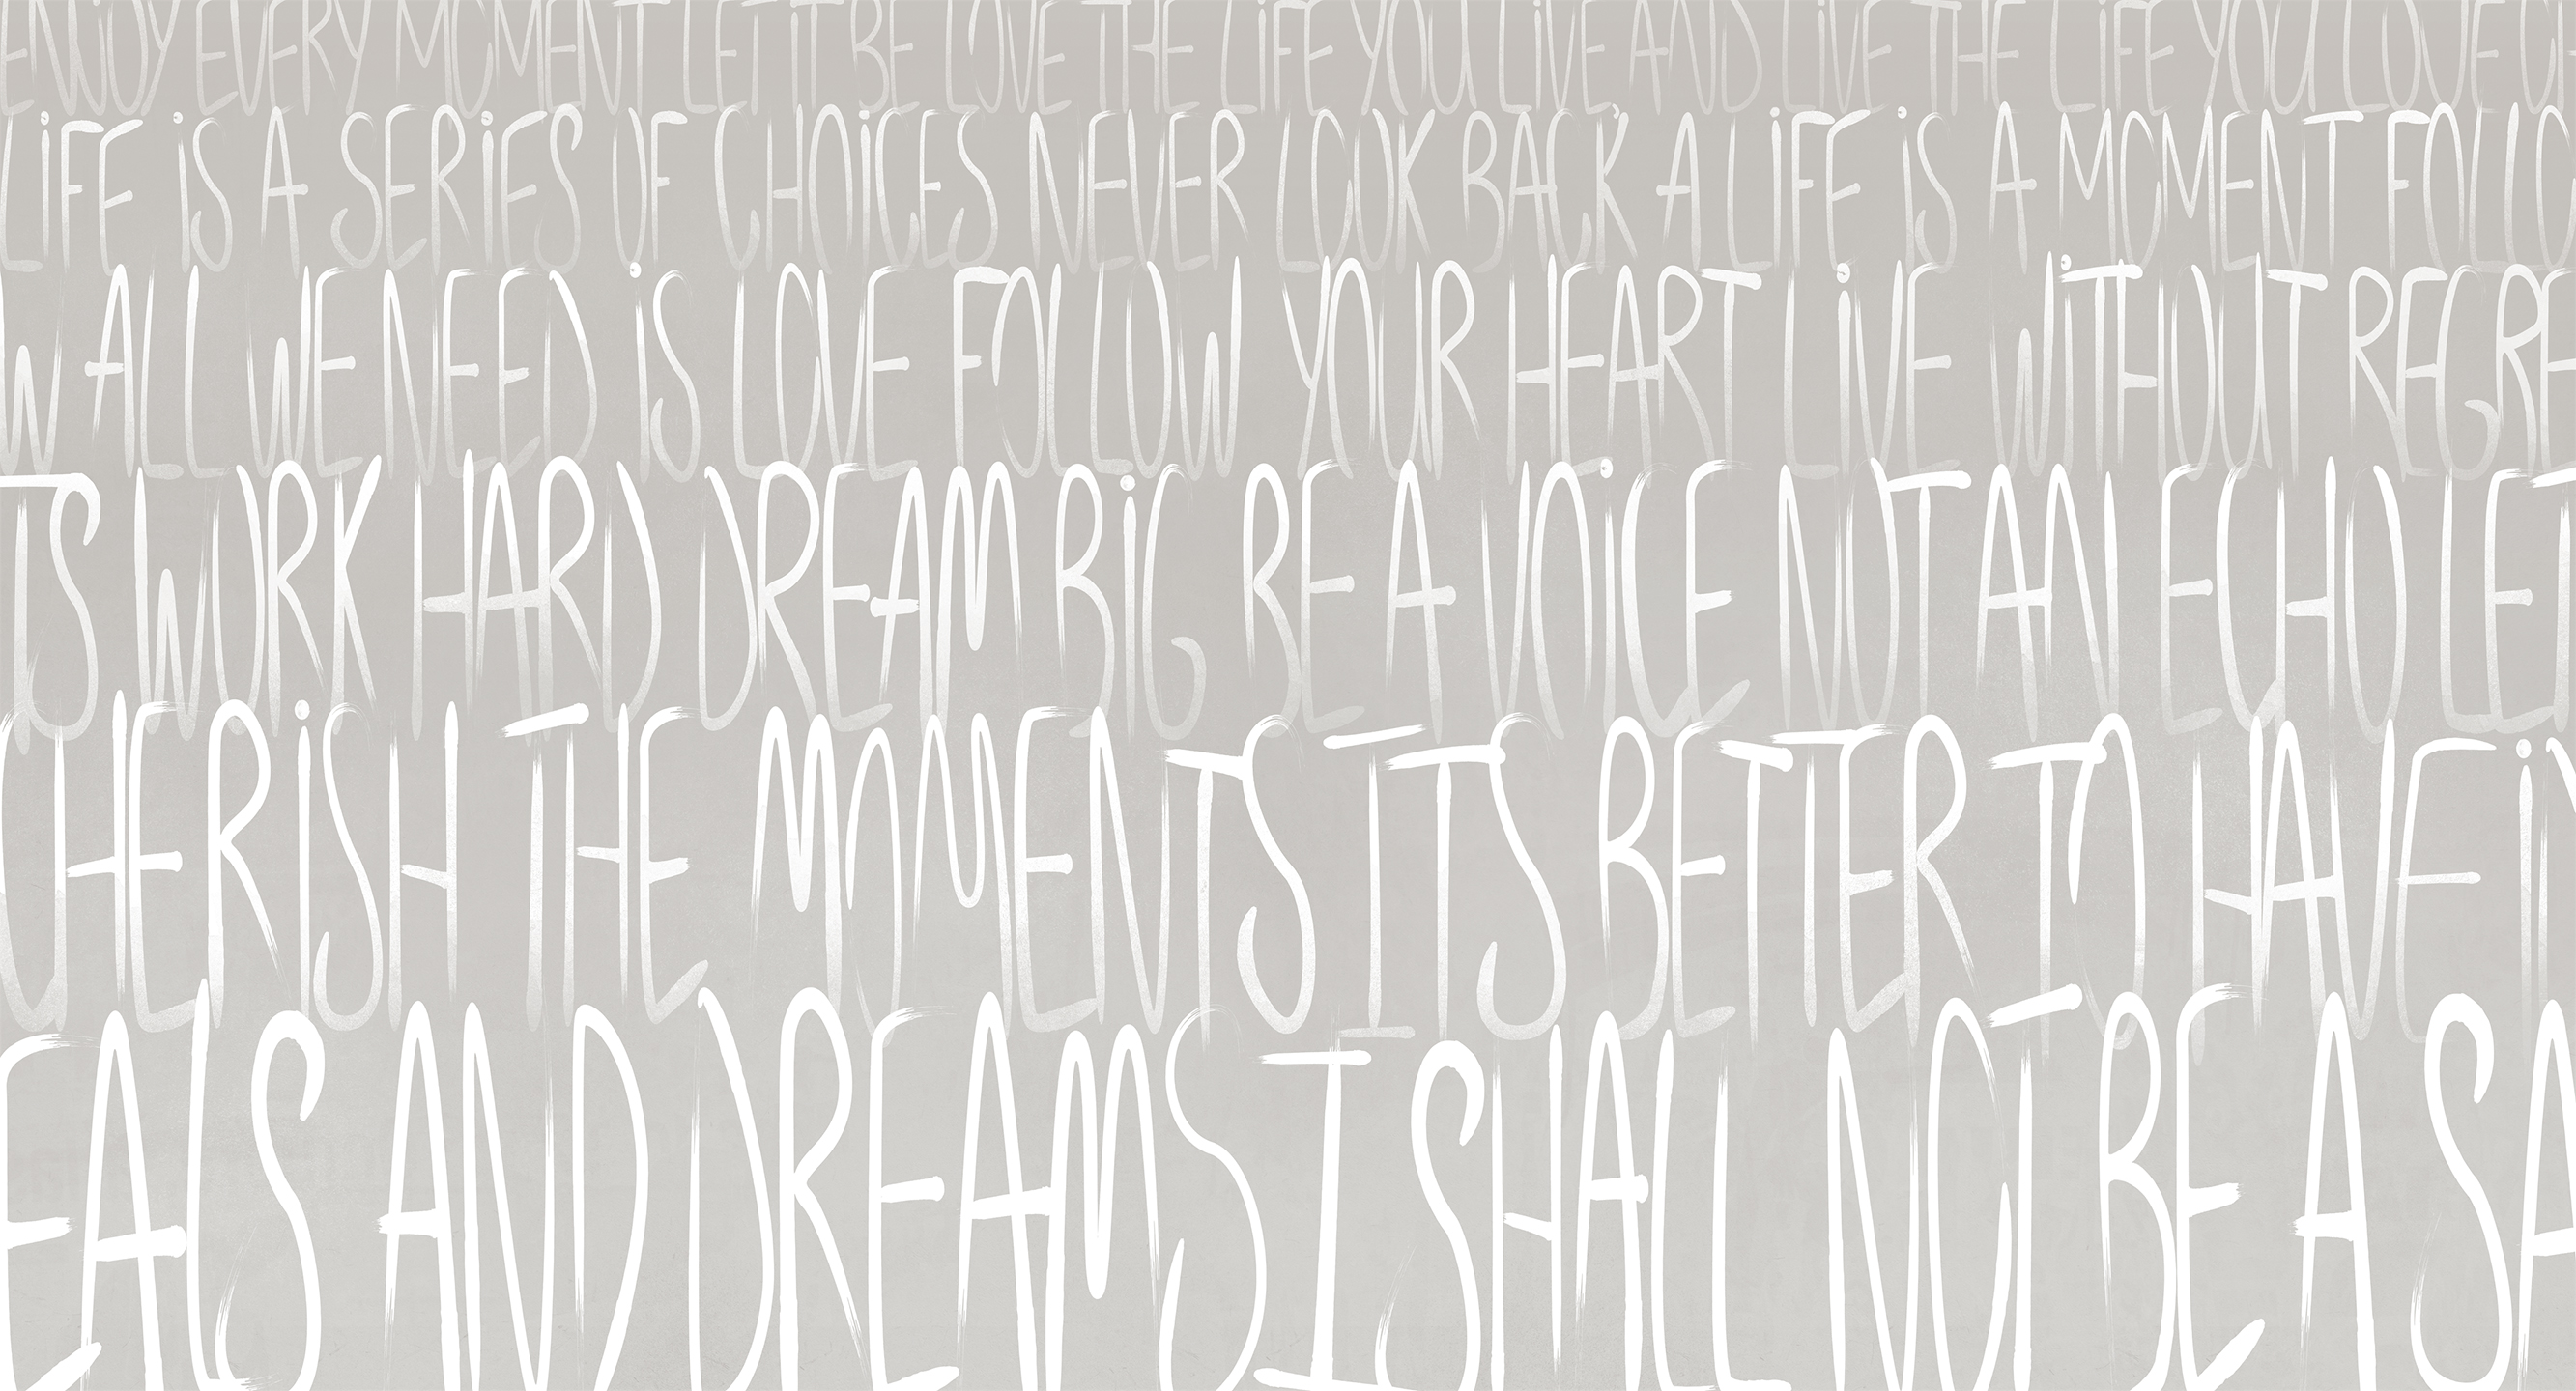 ENJOY EVERY MOMENT LET IT BE LOVE THE LIFE YOU LIVE AND LIVE THE LIFE YOU LOVE
LiFE iS A SERiES OF CHOiCES NEVER LOOK BACK A LiFE iS A MOMENT FOLLO
W ALL WE NEED iS LOVE FOLLOW YOUR HEART LiVE WiTHOUT REGRE
TS WORK HARD DREAM BiG BE A VOiCE NOT AN ECHO LET
CHERiSH THE MOMENTS ITS BETTER TO HAVE
EALS AND DREAMS I SHALL NOT BE A SA